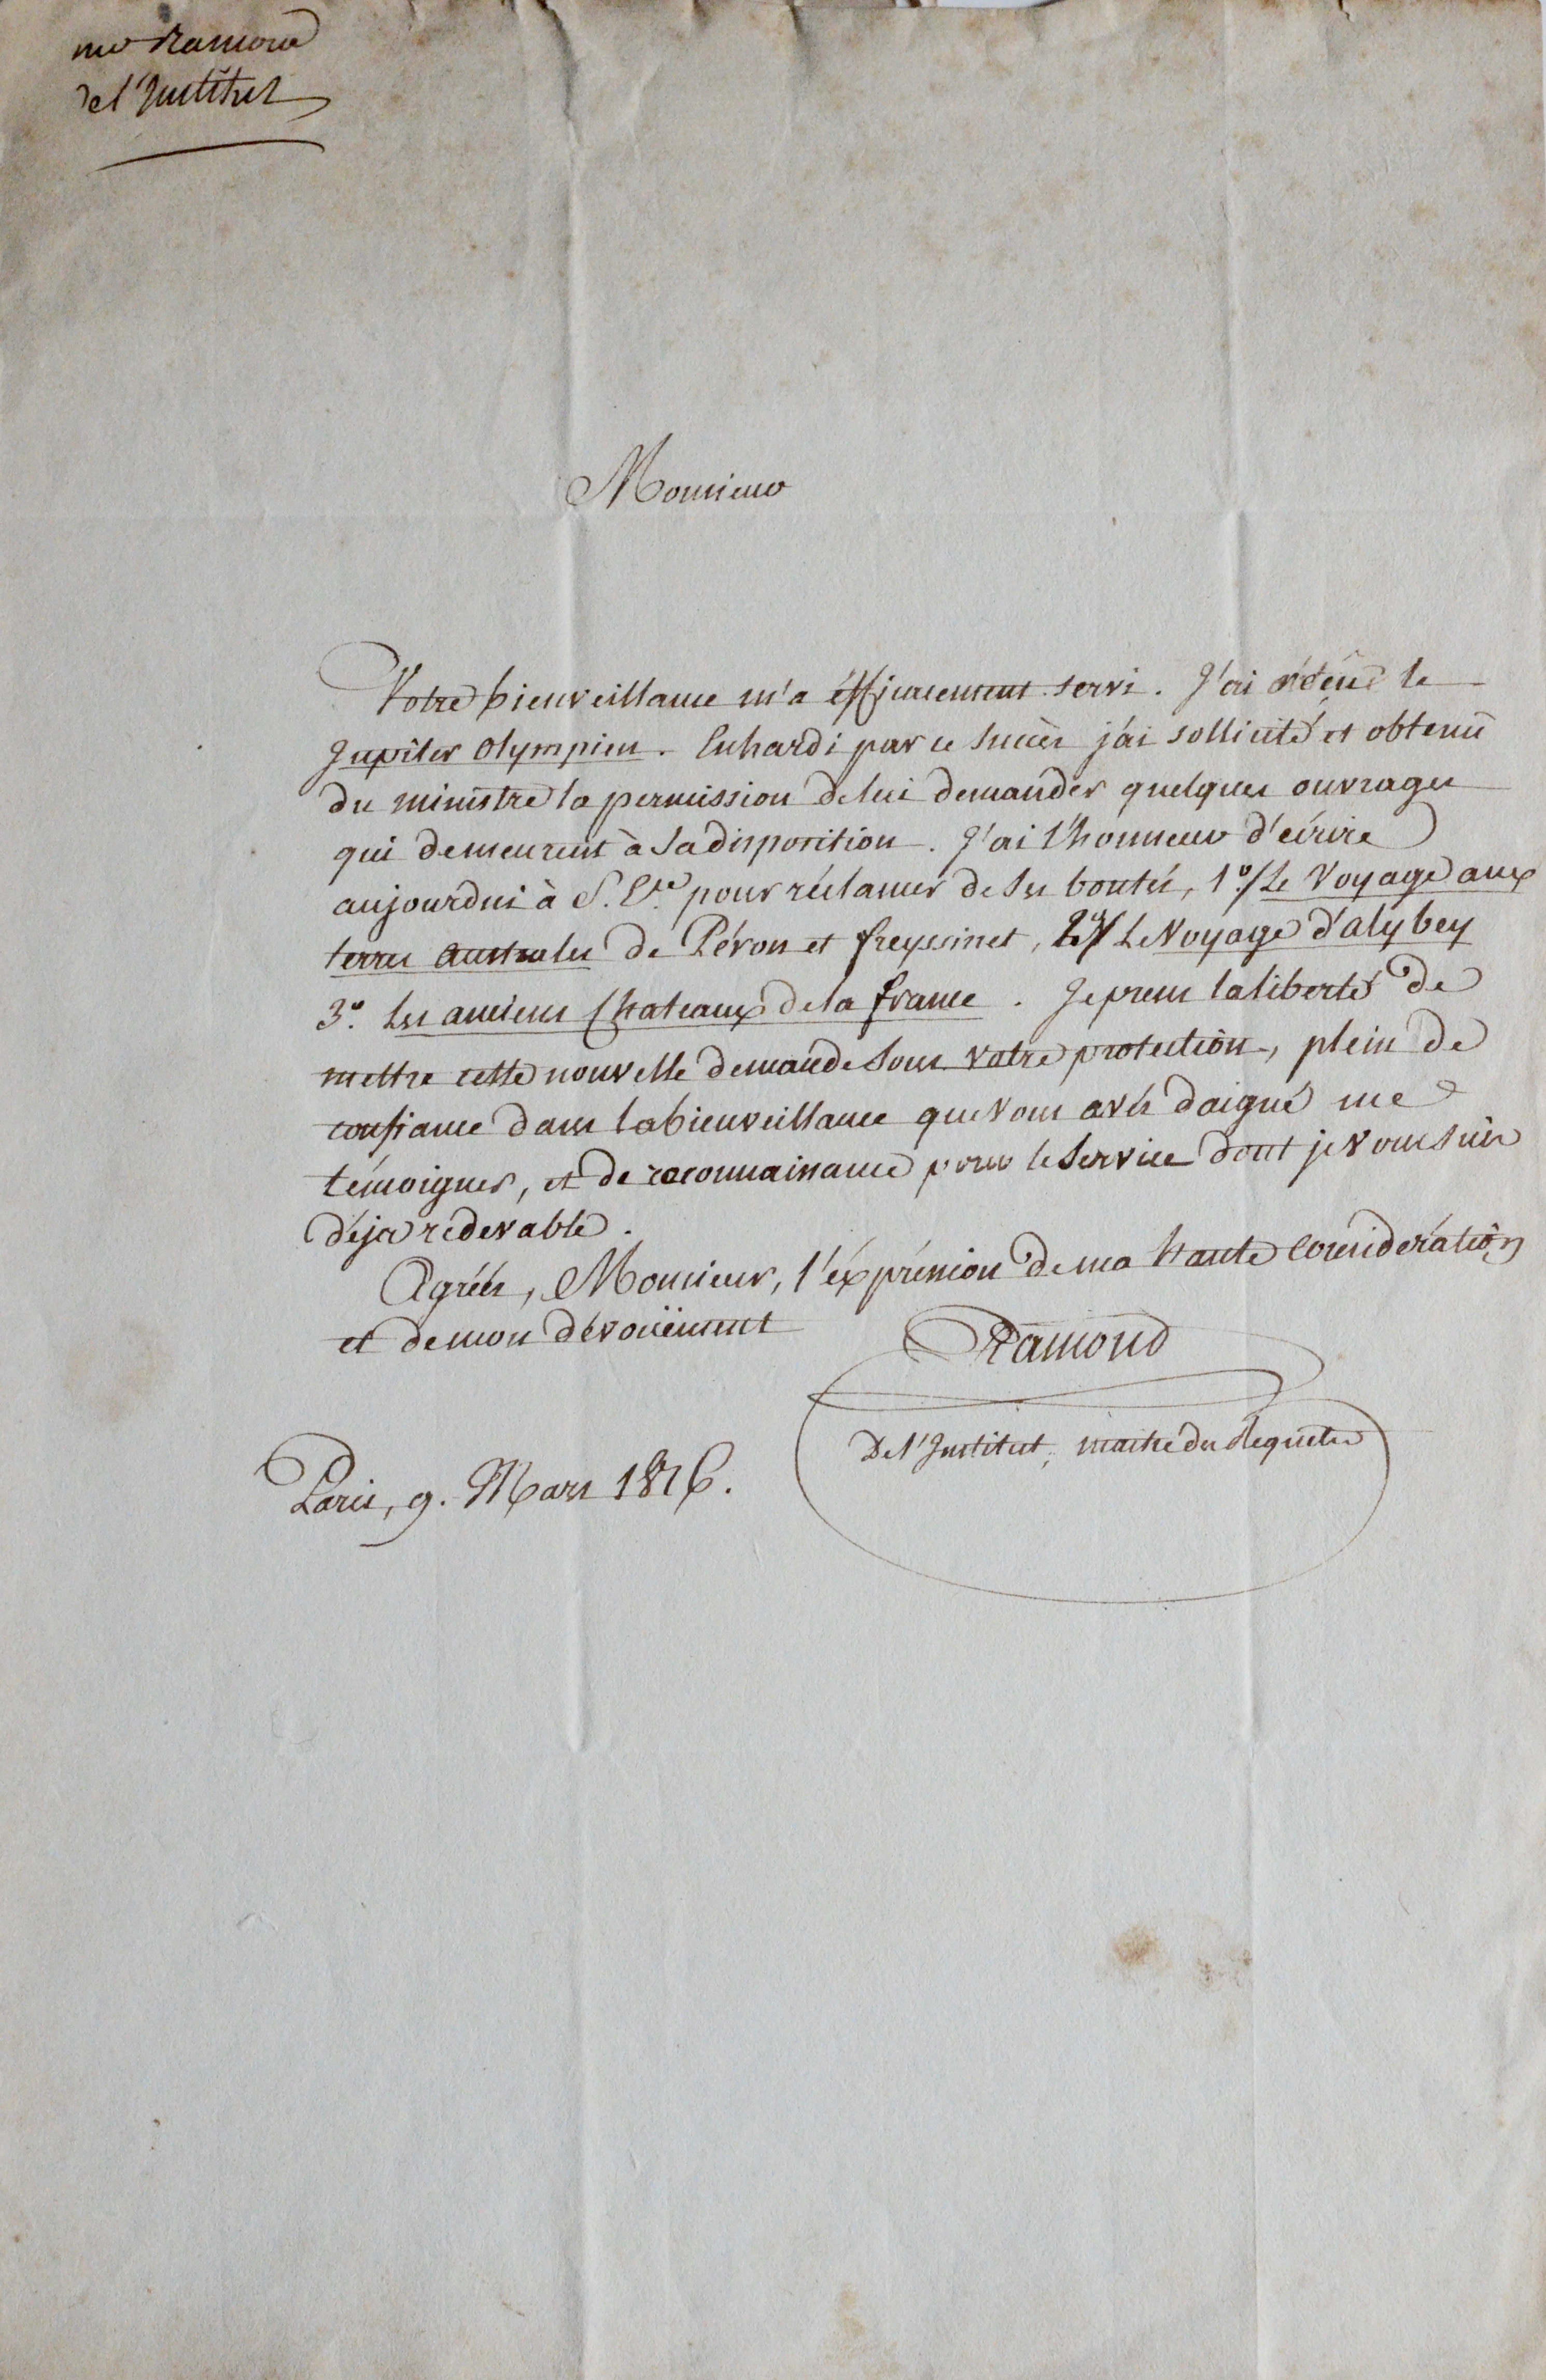 mr Ramond
de l'Institut
Monsieur
Votre bienveillance m'a éfficacement servi. J'ai réçeu le
Jupiter Olympien. Enhardi par ce succès j'ai sollicité et obtenu
du ministre la permission de lui demander quelques ouvrages
qui demeurent à sa disposition. J'ai l'honneur d'écrire
aujourdui à S. Ece. pour réclamer de ses bontés, 1º/ Le Voyage aux
terres australes de Péron et freyssinet, 2º/ Le Voyage d'aly bey
3º. Les anciens Chateaux de la france. Je prens la liberté de
mettre cette nouvelle demande sous votre protection, plein de
confiance dans la bienveillance que vous avés daigné me
témoigner, et de reconnaissance pour le service dont je vous suis
déja rédevable.
Agréés, Monsieur, l'éxpréssion de ma haute considération
et de mon dévouëment
Ramond
De l'Institut, maitre des Requetes
Paris, 9. Mars 1826.